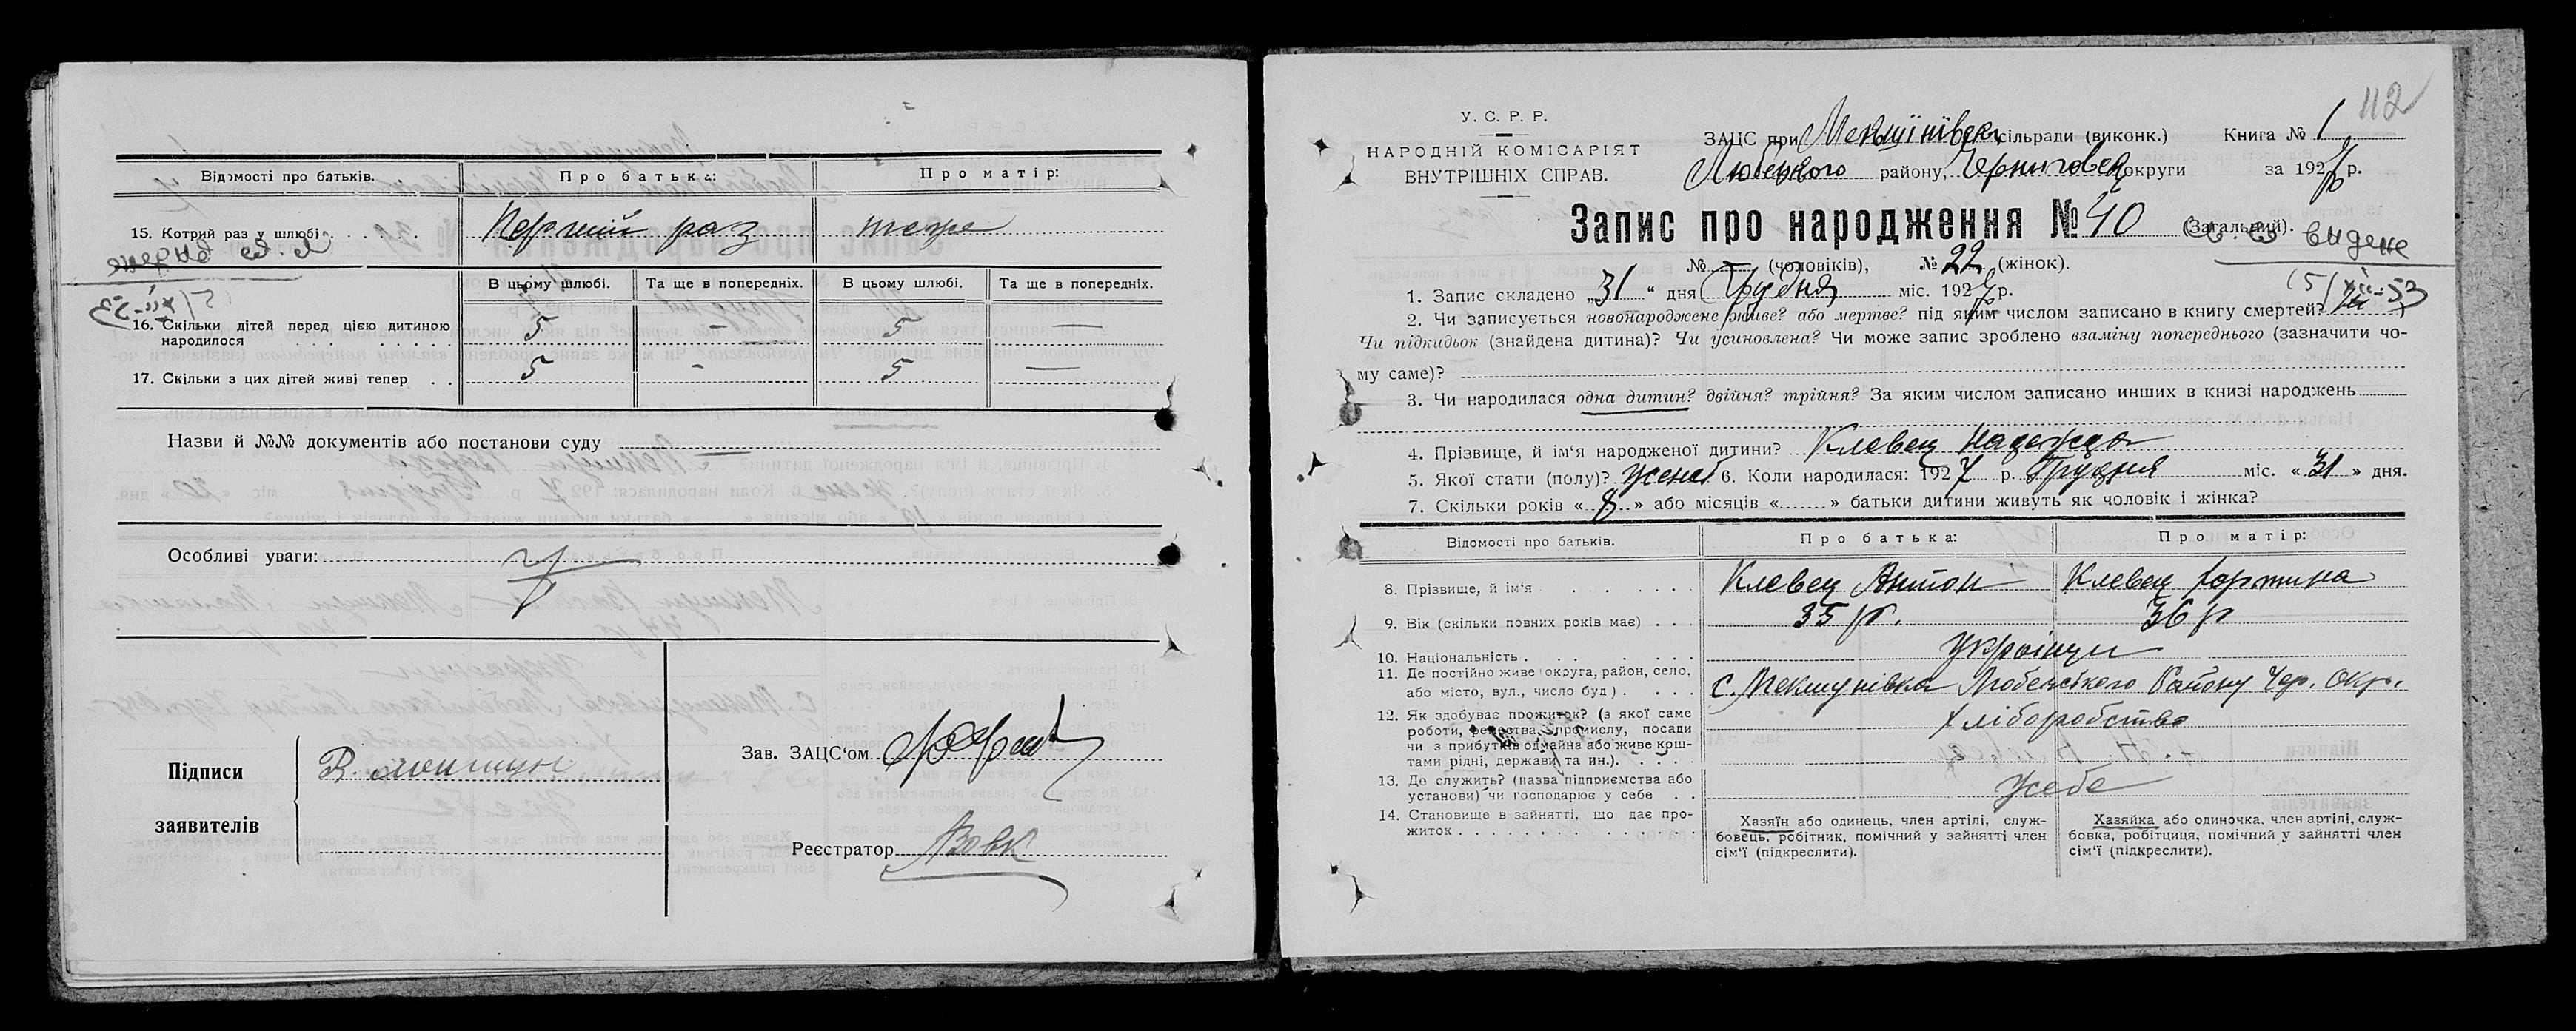 Відомості про батьків.
Про батька:
Про матір:
15. Котрий раз у шлюбі
Перший раз
теже
В цьому шлюбі.
Та ще в попередніх.
В цьому шлюбі.
Та ще в попередніх.
16. Скільки дітей перед цією дитиною
народилося
5 - 5 —
17. Скільки з цих дітей живі тепер
5 - 5 —
Назви й №№ документів або постанови суду —
Особливі уваги:
Підписи
заявителів
Зав. ЗАЦС‘ом
Реєстратор Вовк
112
У. С. Р. Р.
НАРОДНІЙ КОМІСАРІЯТ
ВНУТРІШНІХ СПРАВ.
ЗАЦС при сільради (виконк.)
Книга № 1
Любецького району, округи
за 1927 р.
Запис про народження № 40 (Загальний).
видене
№ (чоловіків), № 22 (жінок).
1. Запис складено „31“ дня Грудня міс. 1927 р.
2. Чи записується новонароджене живе? або мертве? під яким числом записано в книгу смертей?
Чи підкидьок (знайдена дитина)? Чи усиновлена? Чи може запис зроблено взаміну попереднього (зазначити чо-
му саме)?
3. Чи народилася одна дитин? двійня? трійня? За яким числом записано инших в книзі народжень
4. Прізвище, й ім‘я народженої дитини? Клевец Надежда
5. Якої стати (полу)? 6. Коли народилася: 1927 р. Грудня міс. «31» дня.
7. Скільки років «8» або місяців « » батьки дитини живуть як чоловік і жінка?
Відомості про батьків.
Про батька:
Про матір:
8. Прізвище, й ім‘я
Клевец Антон
Клевец
9. Вік (скільки повних років має)
35 р.
36 р
10. Національність
Українці
11. Де постійно живе (округа, район, село,
або місто, вул., число буд)
с. Район Чер. Окр.
12. Як здобуває прожиток? (з якої саме
роботи, ремества, промислу, посади
чи з прибутків одмайна або живе кош-
тами рідні, держави та ин.).
Хліборобство
13. Де служить? (назва підприємства або
установи) чи господарює у себе
Усебе
14. Становище в зайнятті, що дає про-
житок
Хазяїн або одинець, член артілі, служ-
бовець, робітник, помічний у зайнятті член
сім‘ї (підкреслити).
Хазяйка або одиночка, член артілі, служ-
бовка, робітниця, помічний у зайнятті член
сім‘ї (підкреслити).